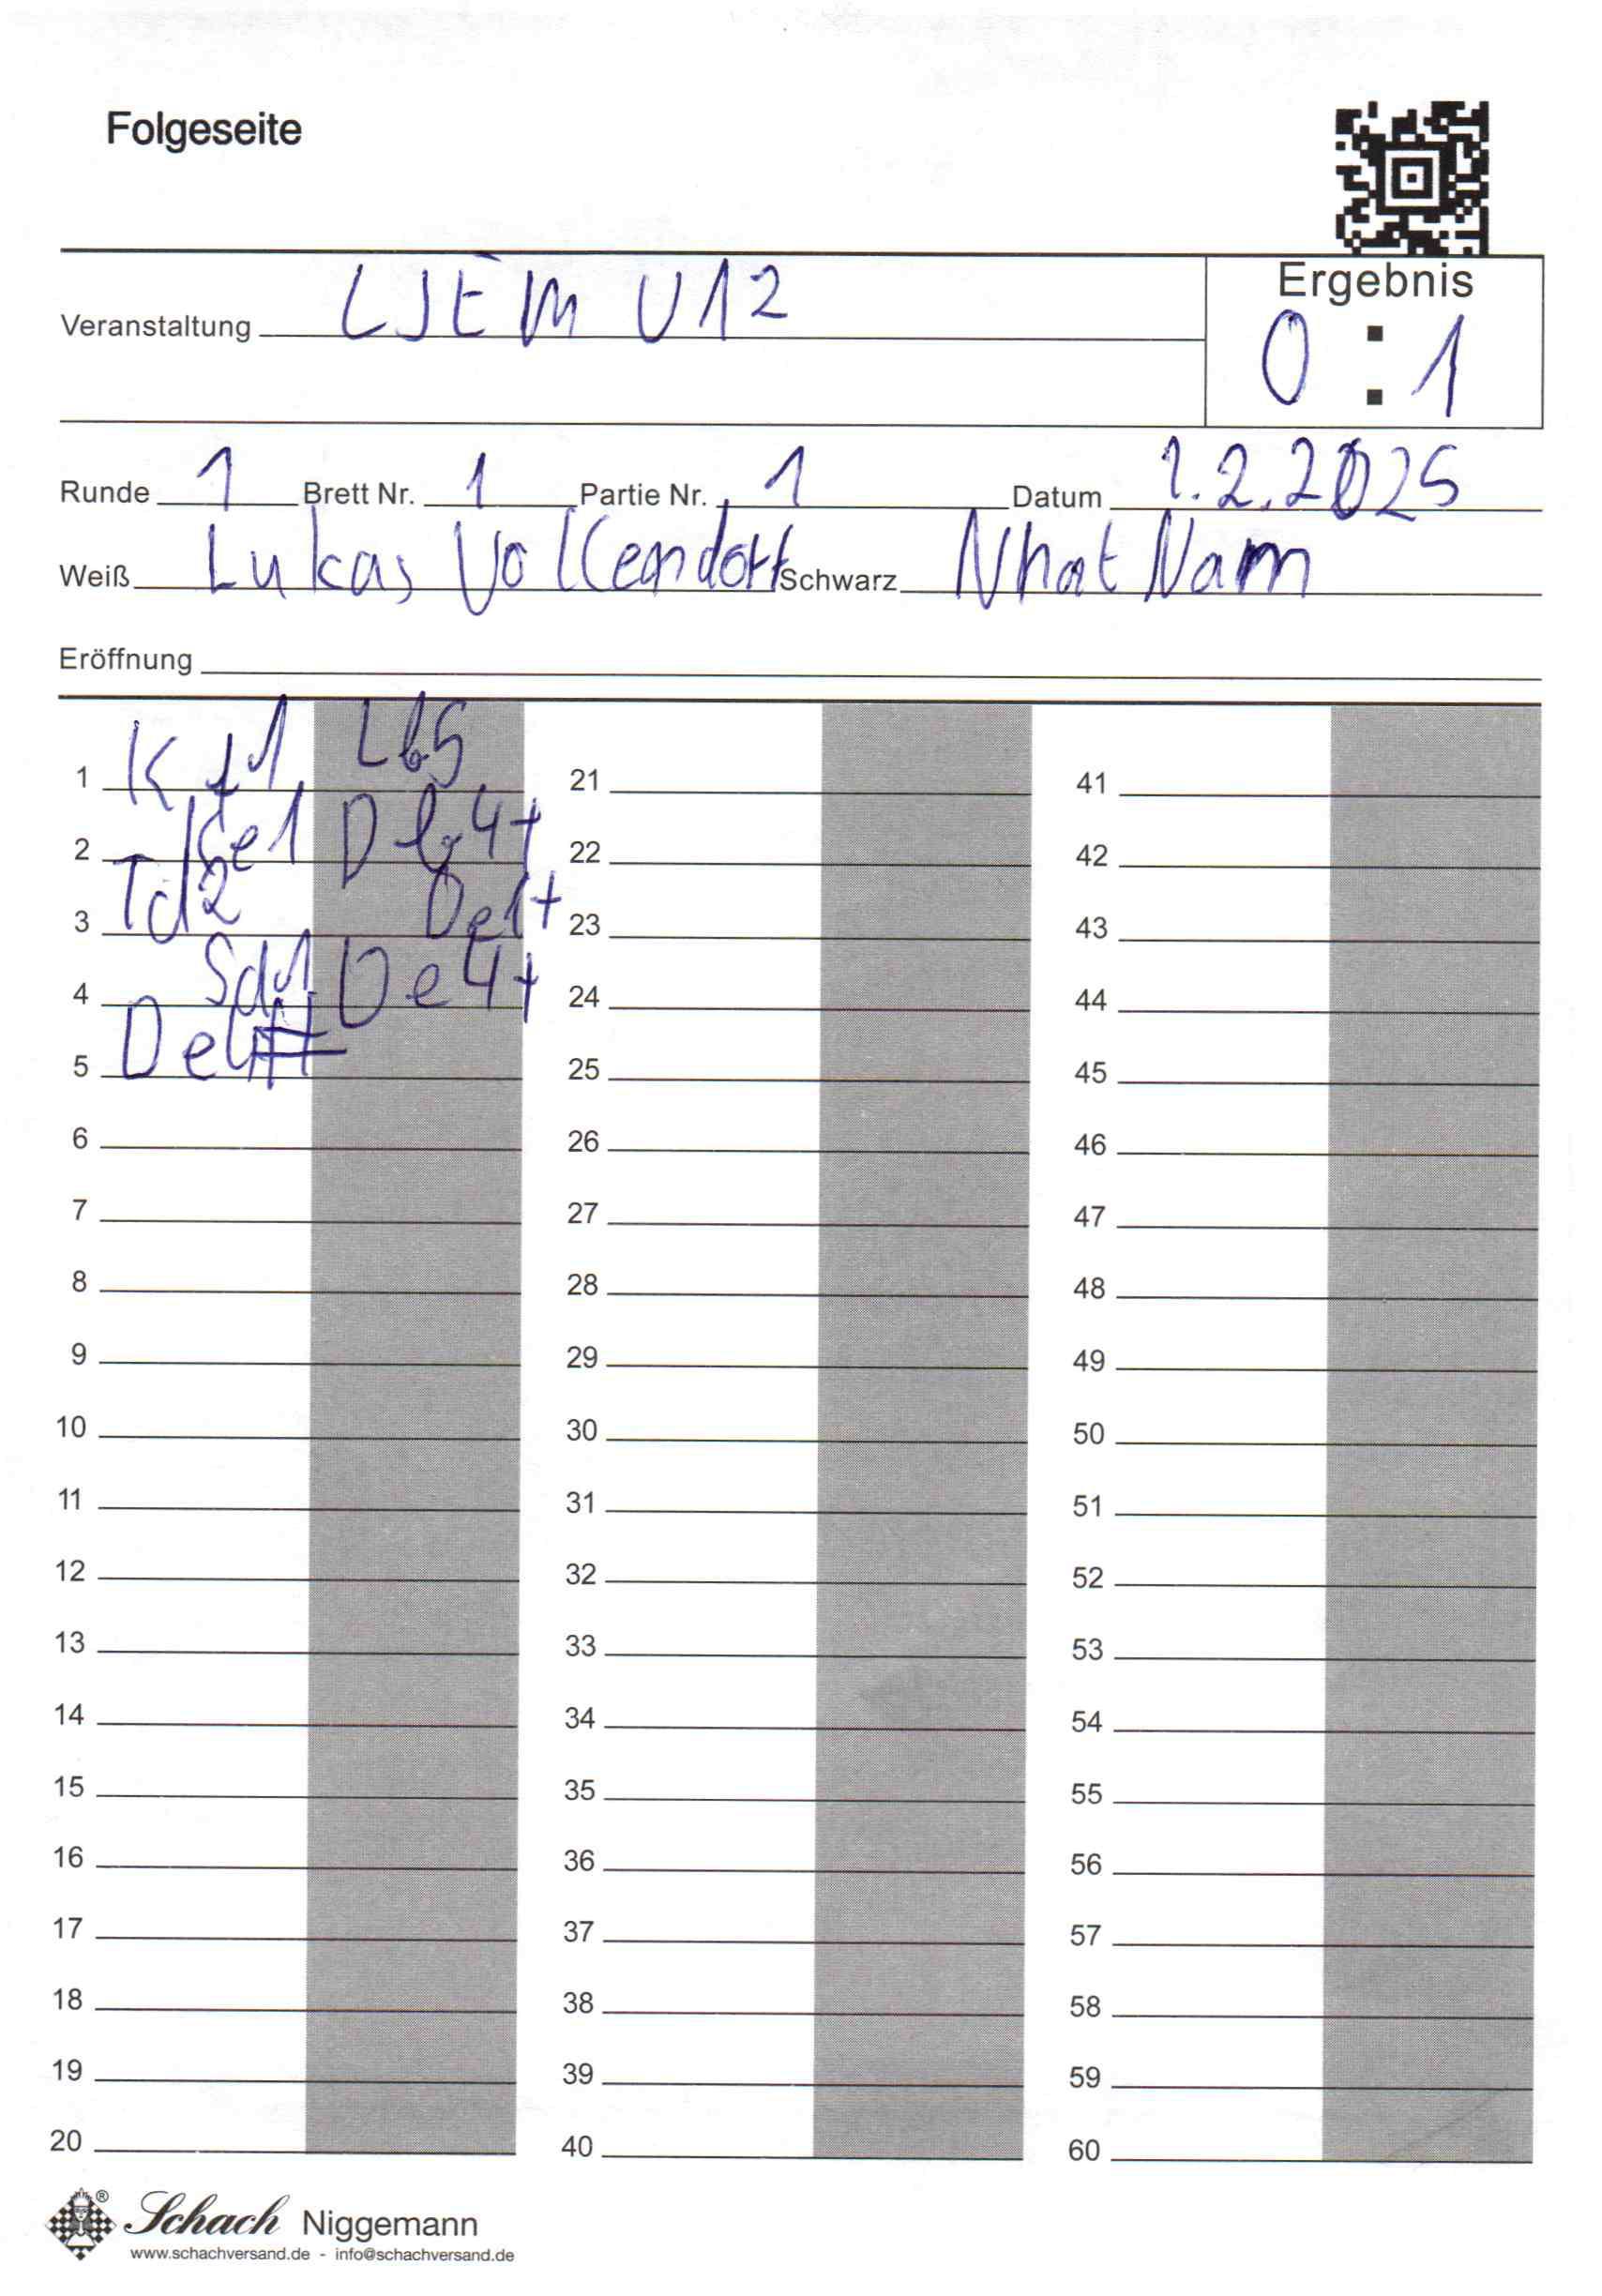 Folgeseite
Veranstaltung LJEM U12
Ergebnis
0 : 1
Runde 1 Brett Nr. 1 Partie Nr. 1 Datum 1.2.2025
Weiß Lukas Vollendorf Schwarz Nhat Nam
Eröffnung
1 Kf1 Lb5 21 41
2 Ke1 Db4+ 22 42
3 Td2 De1+ 23 43
4 Sd1 De4+ 24 44
5 25 45
6 26 46
7 27 47
8 28 48
9 29 49
10 30 50
11 31 51
12 32 52
13 33 53
14 34 54
15 35 55
16 36 56
17 37 57
18 38 58
19 39 59
20 40 60
® Schach Niggemann
www.schachversand.de - info@schachversand.de